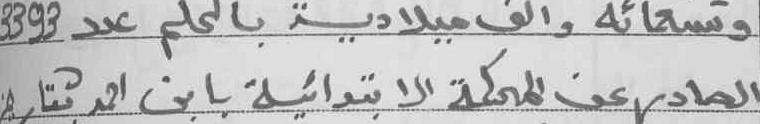 وتسعمائة والف ميلادية بالحكم عدد 3393
الصادر عن المحكمة الابتدائية بابن احمد بتاريخ